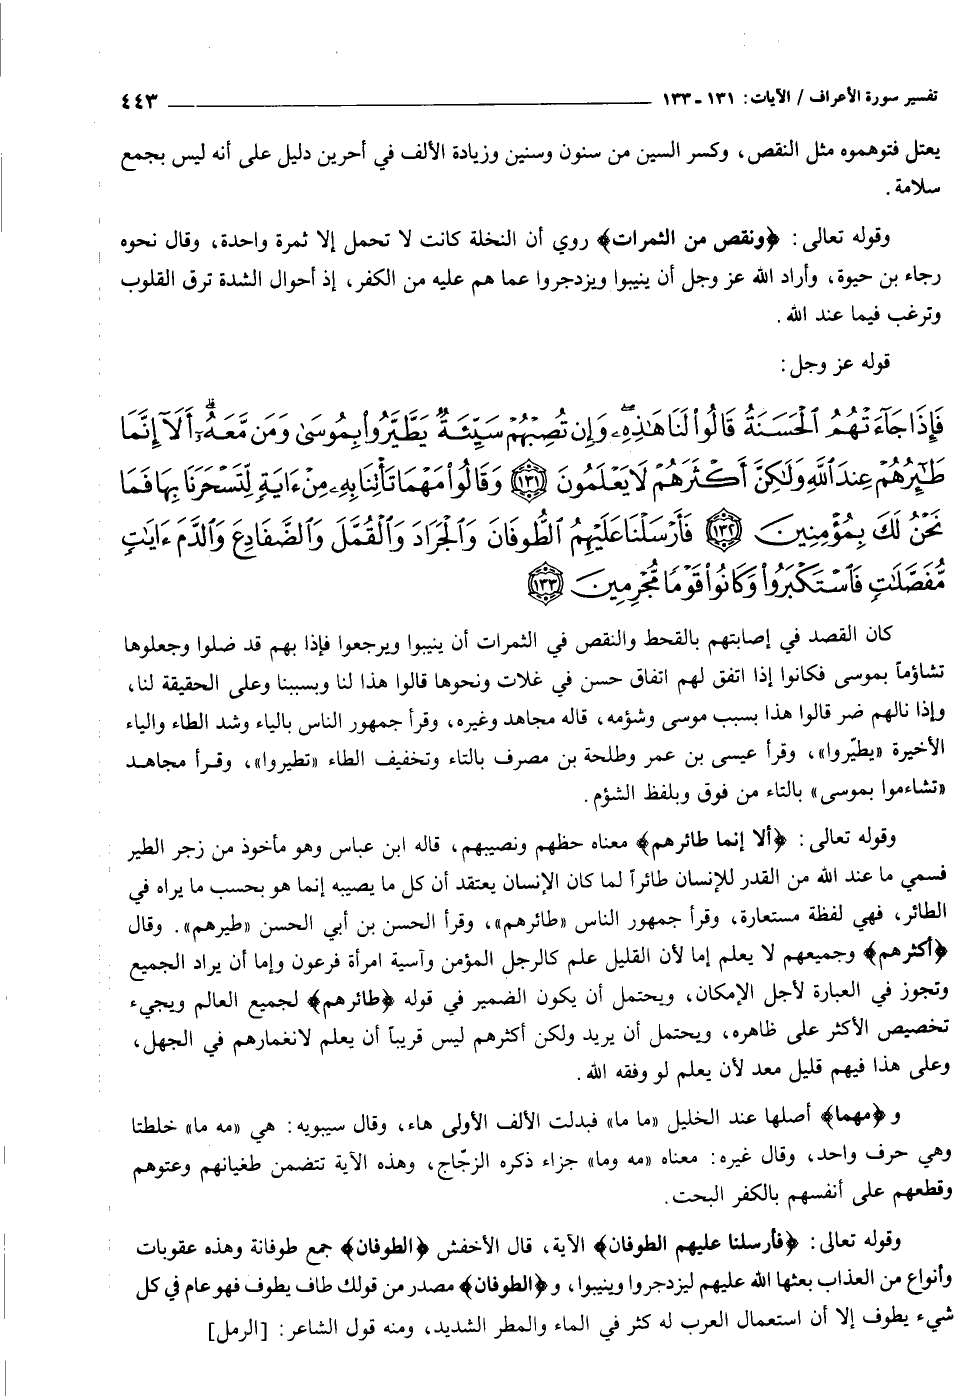 تفسير سورة الأعراف / الآيات: ١٣١ - ١٣٣ ـــــــــ ٤٤٣
يعتل فتوهموه مثل النقص، وكسر السين من سنون وسنين وزيادة الألف في أحرين دليل على أنه ليس بجمع
سلامة.
وقوله تعالى: ﴿ونقص من الثمرات﴾ روي أن النخلة كانت لا تحمل إلا ثمرة واحدة، وقال نحوه
رجاء بن حيوة، وأراد الله عز وجل أن ينيبوا ويزدجروا عما هم عليه من الكفر، إذ أحوال الشدة ترق القلوب
وترغب فيما عند الله.
قوله عز وجل:
فَإِذَا جَآءَتْهُمُ ٱلْحَسَنَةُ قَالُوا۟ لَنَا هَـٰذِهِۦ ۖ وَإِن تُصِبْهُمْ سَيِّئَةٌ يَطَّيَّرُوا۟ بِمُوسَىٰ وَمَن مَّعَهُۥٓ ۗ أَلَآ إِنَّمَا
طَـٰٓئِرُهُمْ عِندَ ٱللَّهِ وَلَـٰكِنَّ أَكْثَرَهُمْ لَا يَعْلَمُونَ ﴿١٣١﴾ وَقَالُوا۟ مَهْمَا تَأْتِنَا بِهِۦ مِنْ ءَايَةٍ لِّتَسْحَرَنَا بِهَا فَمَا
نَحْنُ لَكَ بِمُؤْمِنِينَ ﴿١٣٢﴾ فَأَرْسَلْنَا عَلَيْهِمُ ٱلطُّوفَانَ وَٱلْجَرَادَ وَٱلْقُمَّلَ وَٱلضَّفَادِعَ وَٱلدَّمَ ءَايَـٰتٍ
مُّفَصَّلَـٰتٍ فَٱسْتَكْبَرُوا۟ وَكَانُوا۟ قَوْمًا مُّجْرِمِينَ ﴿١٣٣﴾
كان القصد في إصابتهم بالقحط والنقص في الثمرات أن ينيبوا ويرجعوا فإذا بهم قد ضلوا وجعلوها
تشاؤماً بموسى فكانوا إذا اتفق لهم اتفاق حسن في غلات ونحوها قالوا هذا لنا وبسببنا وعلى الحقيقة لنا،
وإذا نالهم ضر قالوا هذا بسبب موسى وشؤمه، قاله مجاهد وغيره، وقرأ جمهور الناس بالياء وشد الطاء والياء
الأخيرة «يطيّروا»، وقرأ عيسى بن عمر وطلحة بن مصرف بالتاء وتخفيف الطاء «تطيروا»، وقـرأ مجاهـد
«تشاءموا بموسى» بالتاء من فوق وبلفظ الشؤم.
وقوله تعالى: ﴿ألا إنما طائرهم﴾ معناه حظهم ونصيبهم، قاله ابن عباس وهو مأخوذ من زجر الطير
فسمي ما عند الله من القدر للإنسان طائراً لما كان الإنسان يعتقد أن كل ما يصيبه إنما هو بحسب ما يراه في
الطائر، فهي لفظة مستعارة، وقرأ جمهور الناس «طائرهم»، وقرأ الحسن بن أبي الحسن «طيرهم». وقال
﴿أكثرهم﴾ وجميعهم لا يعلم إما لأن القليل علم كالرجل المؤمن وآسية امرأة فرعون وإما أن يراد الجميع
وتجوز في العبارة لأجل الإمكان، ويحتمل أن يكون الضمير في قوله ﴿طائرهم﴾ لجميع العالم ويجيء
تخصيص الأكثر على ظاهره، ويحتمل أن يريد ولكن أكثرهم ليس قريباً أن يعلم لانغمارهم في الجهل،
وعلى هذا فيهم قليل معد لأن يعلم لو وفقه الله.
و ﴿مهما﴾ أصلها عند الخليل «ما ما» فبدلت الألف الأولى هاء، وقال سيبويه: هي «مه ما» خلطتا
وهي حرف واحد، وقال غيره: معناه «مه وما» جزاء ذكره الزجّاج، وهذه الآية تتضمن طغيانهم وعتوهم
وقطعهم على أنفسهم بالكفر البحت.
وقوله تعالى: ﴿فأرسلنا عليهم الطوفان﴾ الآية، قال الأخفش ﴿الطوفان﴾ جمع طوفانة وهذه عقوبات
وأنواع من العذاب بعثها الله عليهم ليزدجروا وينيبوا، و ﴿الطوفان﴾ مصدر من قولك طاف يطوف فهو عام في كل
شيء يطوف إلا أن استعمال العرب له كثر في الماء والمطر الشديد، ومنه قول الشاعر: [الرمل]